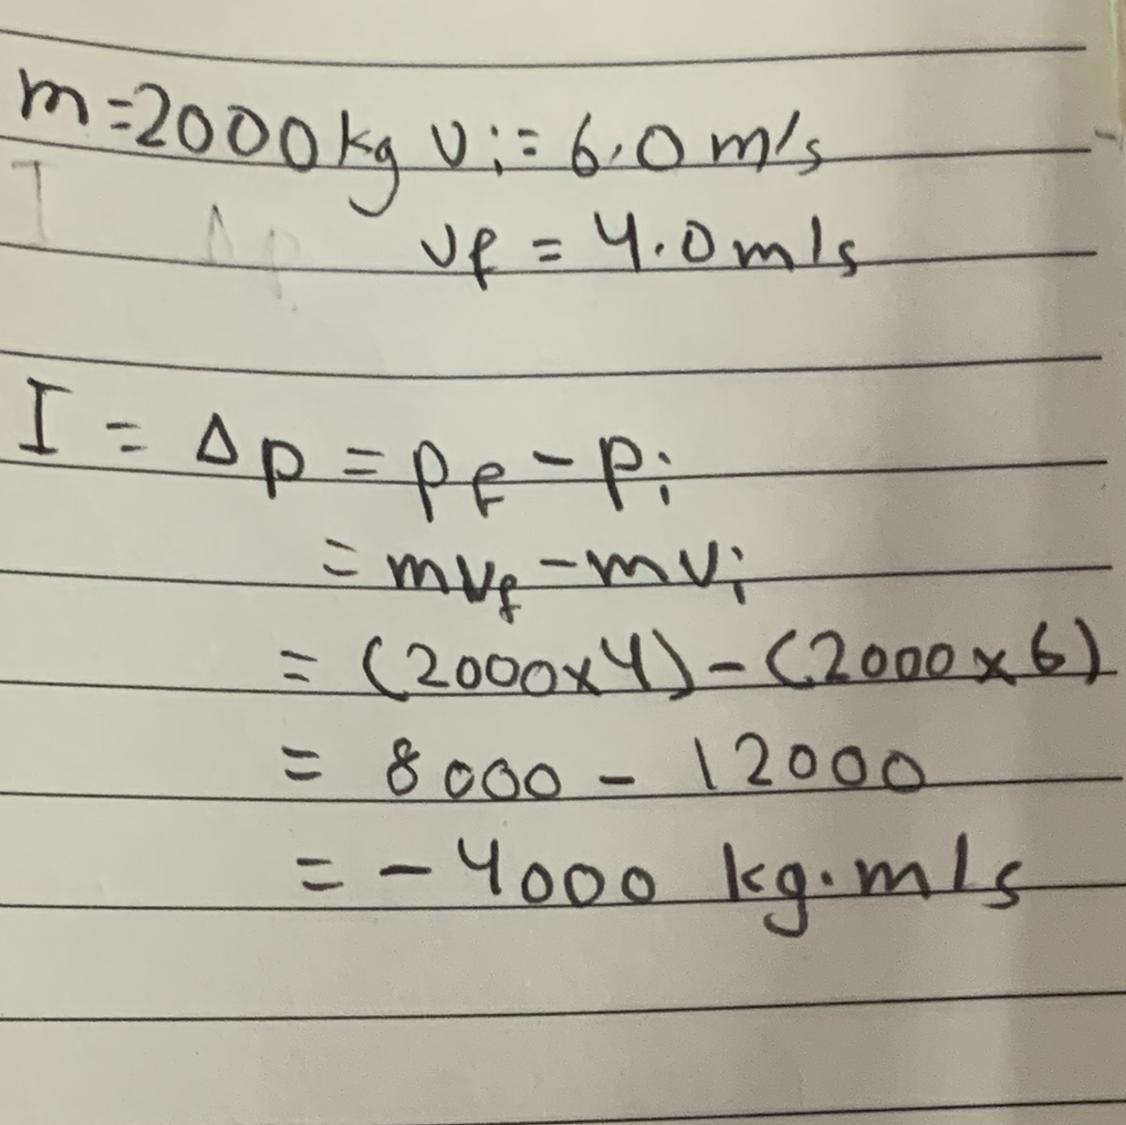 m=2000kg vi = 6.0 m/s
vf = 4.0 m/s
I = Δp = pf - pi
= mvf - mvi
= (2000x4) - (2000x6)
= 8000 - 12000
= -4000 kg.m/s